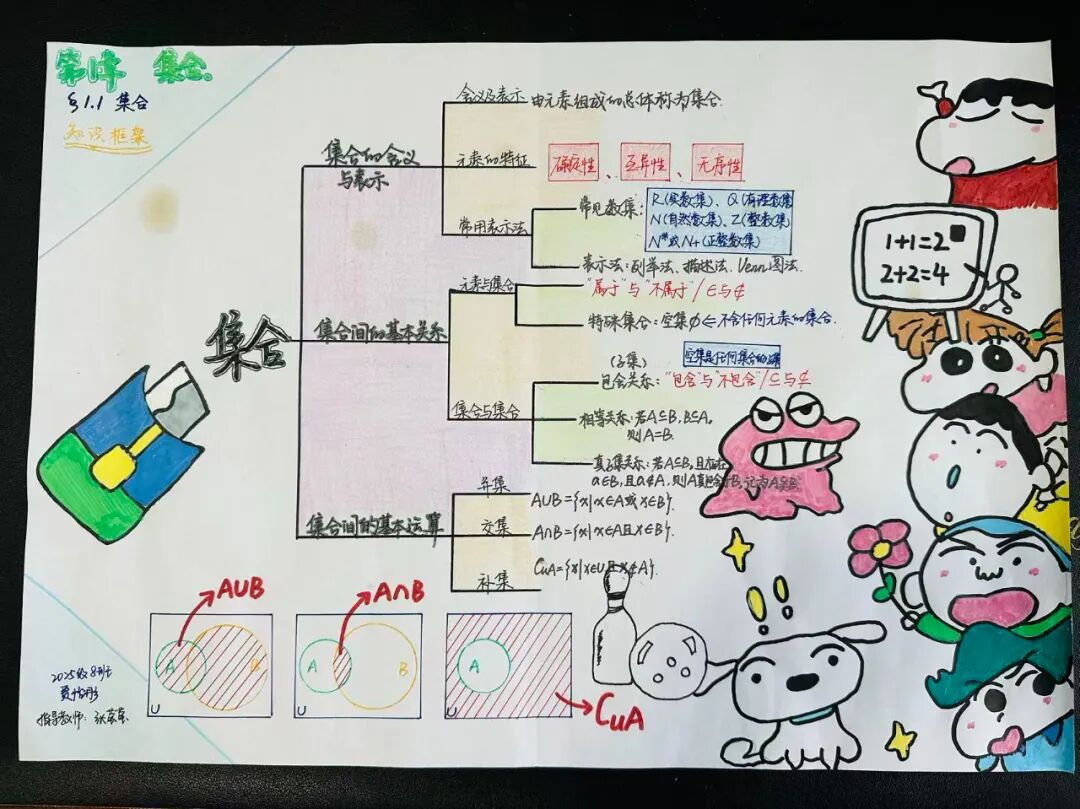 第1章 集合.
§1.1 集合
知识框架
集合
集合的含义
与表示
含义及表示
由元素组成的总体称为集合.
元素的特征
确定性、互异性、无序性
常用表示法
常见数集:
R(实数集)、Q(有理数集)
N(自然数集)、Z(整数集)
N*或N+(正整数集)
表示法:列举法、描述法、Venn图法.
集合间的基本关系
元素与集合
"属于"与"不属于"/∈与∉
特殊集合:空集∅⇐不含任何元素的集合.
集合与集合
(子集)
空集是任何集合的子集
包含关系:"包含"与"不包含"/⊆与⊈
相等关系:若A⊆B,B⊆A,
则A=B.
真子集关系:若A⊆B,且存在
a∈B,且a∉A,则A真包含于B,记为A⫋B
集合间的基本运算
并集
A∪B={x|x∈A或x∈B}.
交集
A∩B={x|x∈A且x∈B}.
补集
CuA={x|x∈U且x∉A}.
1+1=2
2+2=4
A∪B
A B
U
A∩B
A B
U
A
U
CuA
2025级8班
指导教师: